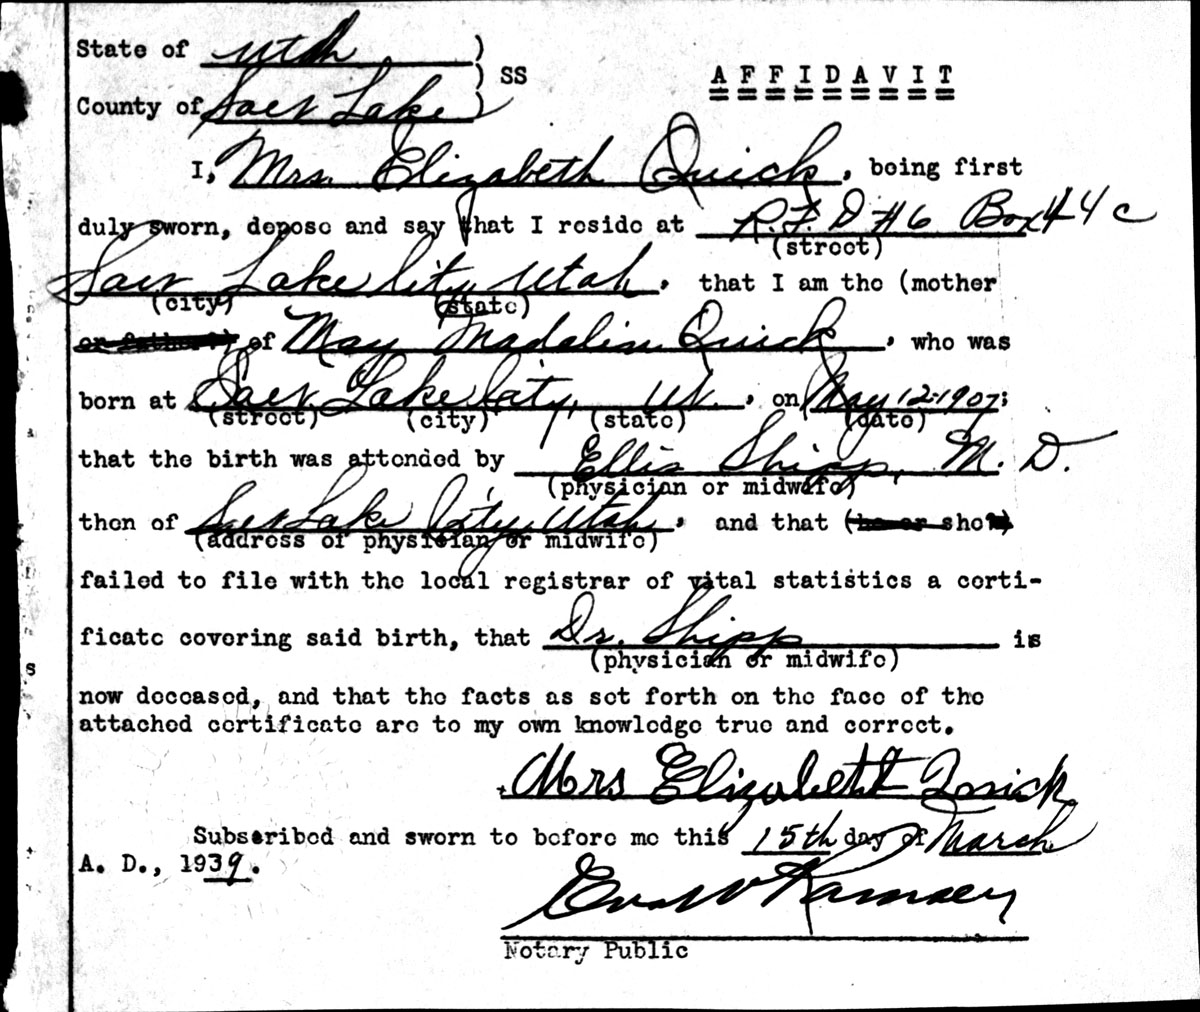 State of Utah )
) SS
A F F I D A V I T
County of Salt Lake )
I, Mrs. Elizabeth Quick, being first
duly sworn, depose and say that I reside at R.F.D #6 Box 44c
(street)
Salt Lake City Utah, that I am the (mother
(city) (state)
or father) of May Madalin Quick, who was
born at Salt Lake City, Ut., on May 12-1907;
(street) (city) (state) (date)
that the birth was attended by Ellis Shipp, M. D.
(physician or midwife)
then of Salt Lake City, Utah, and that (he or she)
(address of physician or midwife)
failed to file with the local registrar of vital statistics a certi-
ficate covering said birth, that Dr. Shipp is
(physician or midwife)
now deceased, and that the facts as set forth on the face of the
attached certificate are to my own knowledge true and correct.
Mrs Elizabeth Quick
Subscribed and sworn to before me this 15th day of March
A. D., 1939.
Ramsey
Notary Public